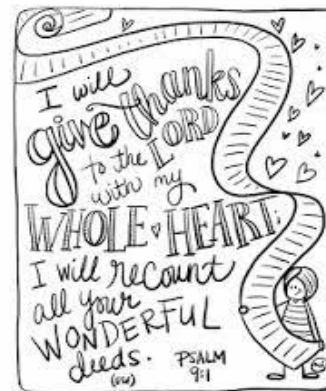 I will
give thanks
to the LORD
with my
WHOLE HEART;
I will recount
all your
WONDERFUL
deeds.
PSALM
9:1